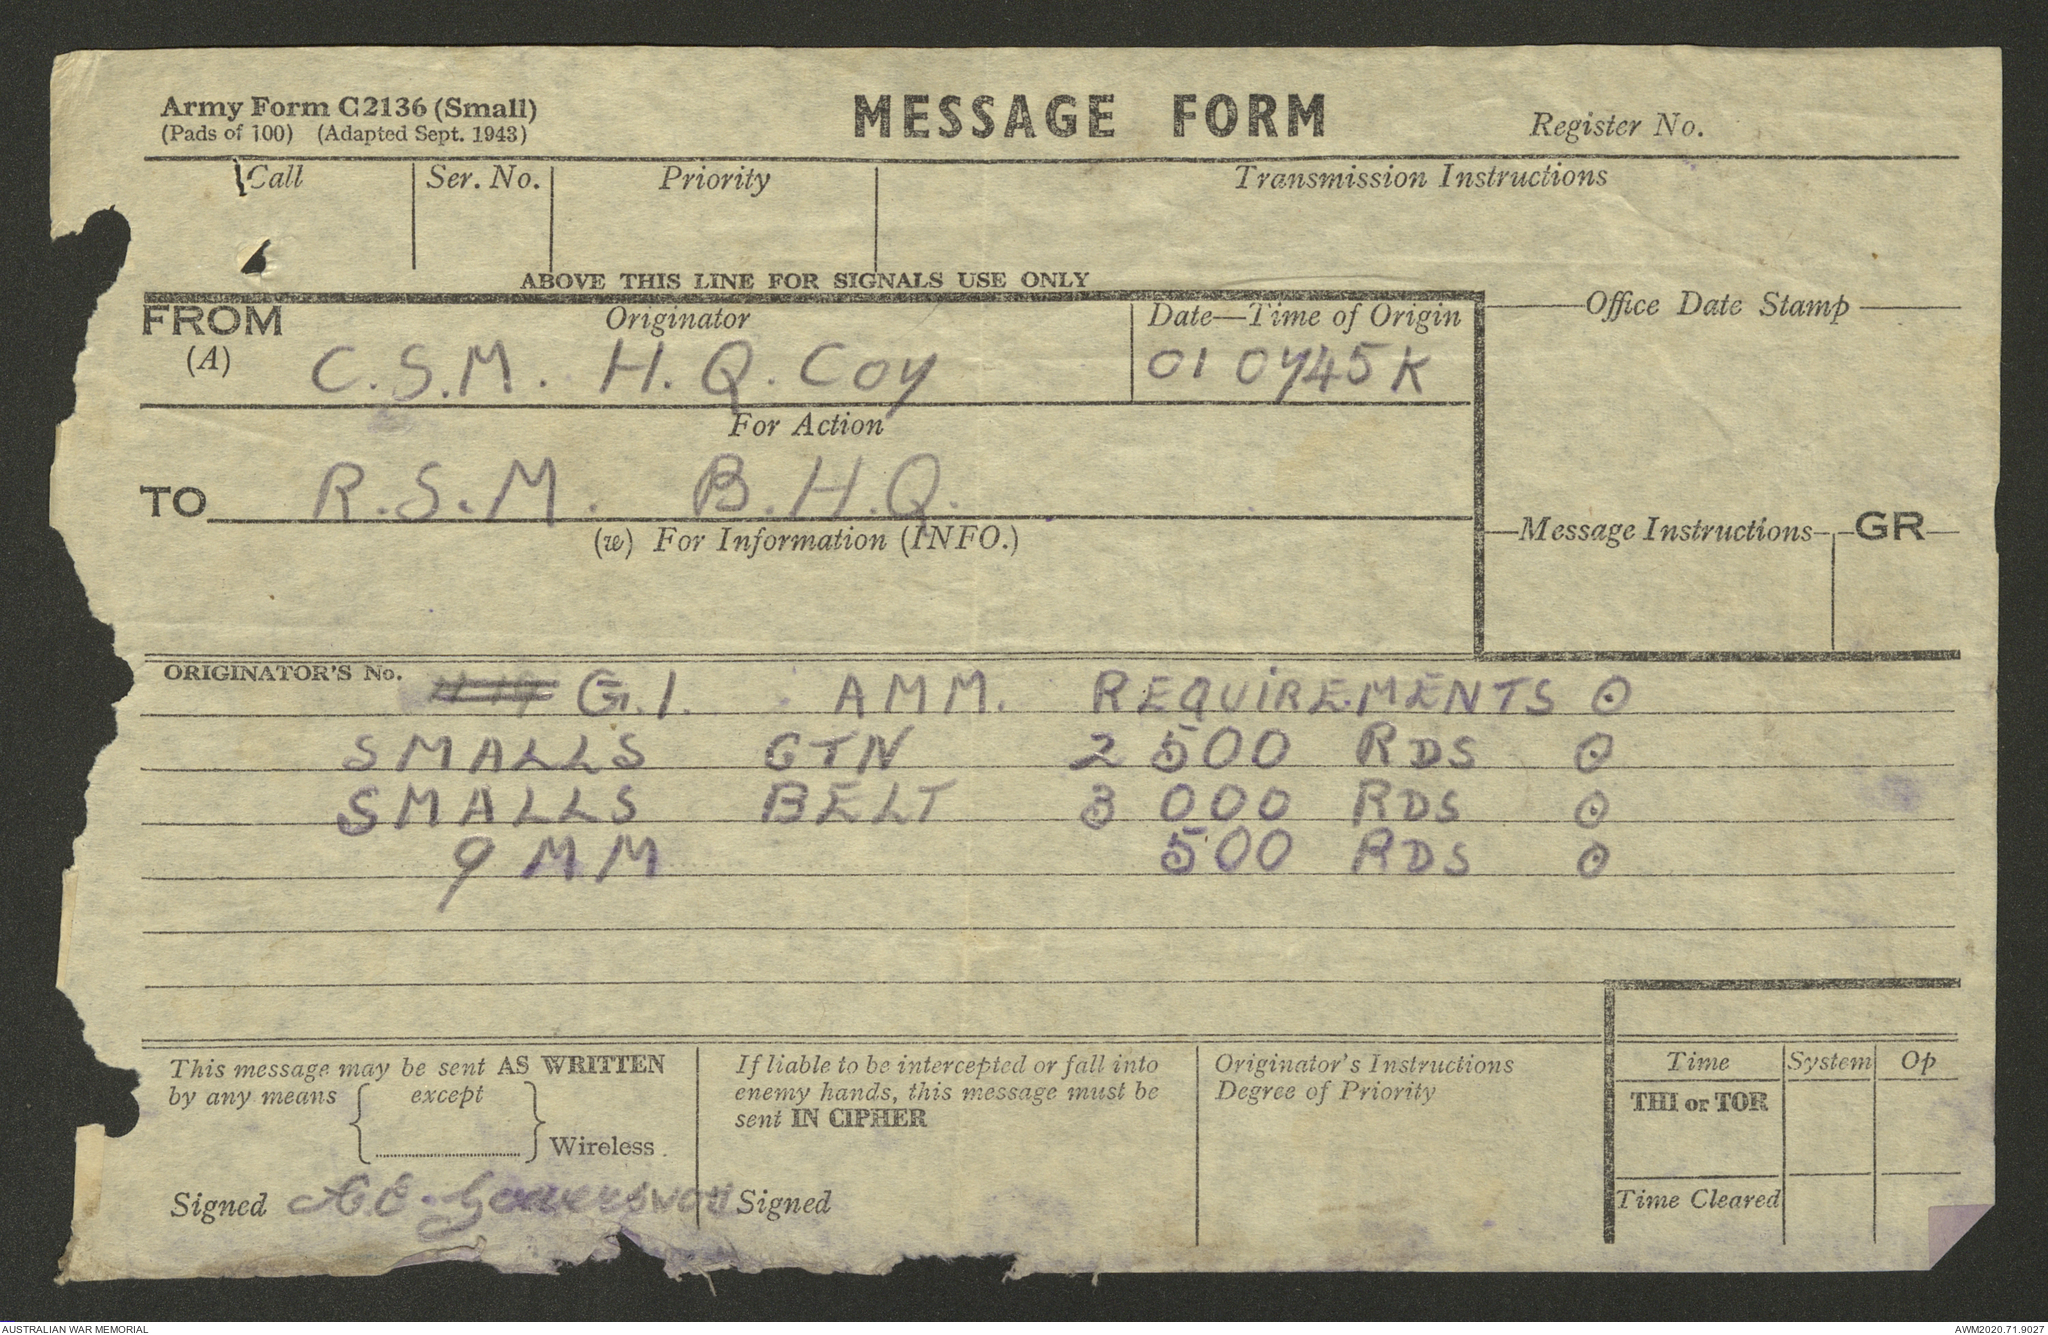 Army Form C2136 (Small)
(Pads of 100) (Adapted Sept. 1943)
MESSAGE FORM
Register No.
Call
Ser. No.
Priority
Transmission Instructions
ABOVE THIS LINE FOR SIGNALS USE ONLY
FROM
(A)
Originator
C.S.M. H.Q. Coy
Date—Time of Origin
01 0745K
Office Date Stamp
For Action
TO R.S.M. B.H.Q.
(w) For Information (INFO.)
Message Instructions
GR
ORIGINATOR'S No. G.1. AMM. REQUIREMENTS ⊙
SMALLS CTN 2 500 RDS ⊙
SMALLS BELT 3 000 RDS ⊙
9 MM 500 RDS ⊙
This message may be sent AS WRITTEN
by any means { except
} Wireless
Signed
If liable to be intercepted or fall into
enemy hands, this message must be
sent IN CIPHER
Signed
Originator's Instructions
Degree of Priority
Time System Op
THI or TOR
Time Cleared
AUSTRALIAN WAR MEMORIAL
AWM2020.71.9027